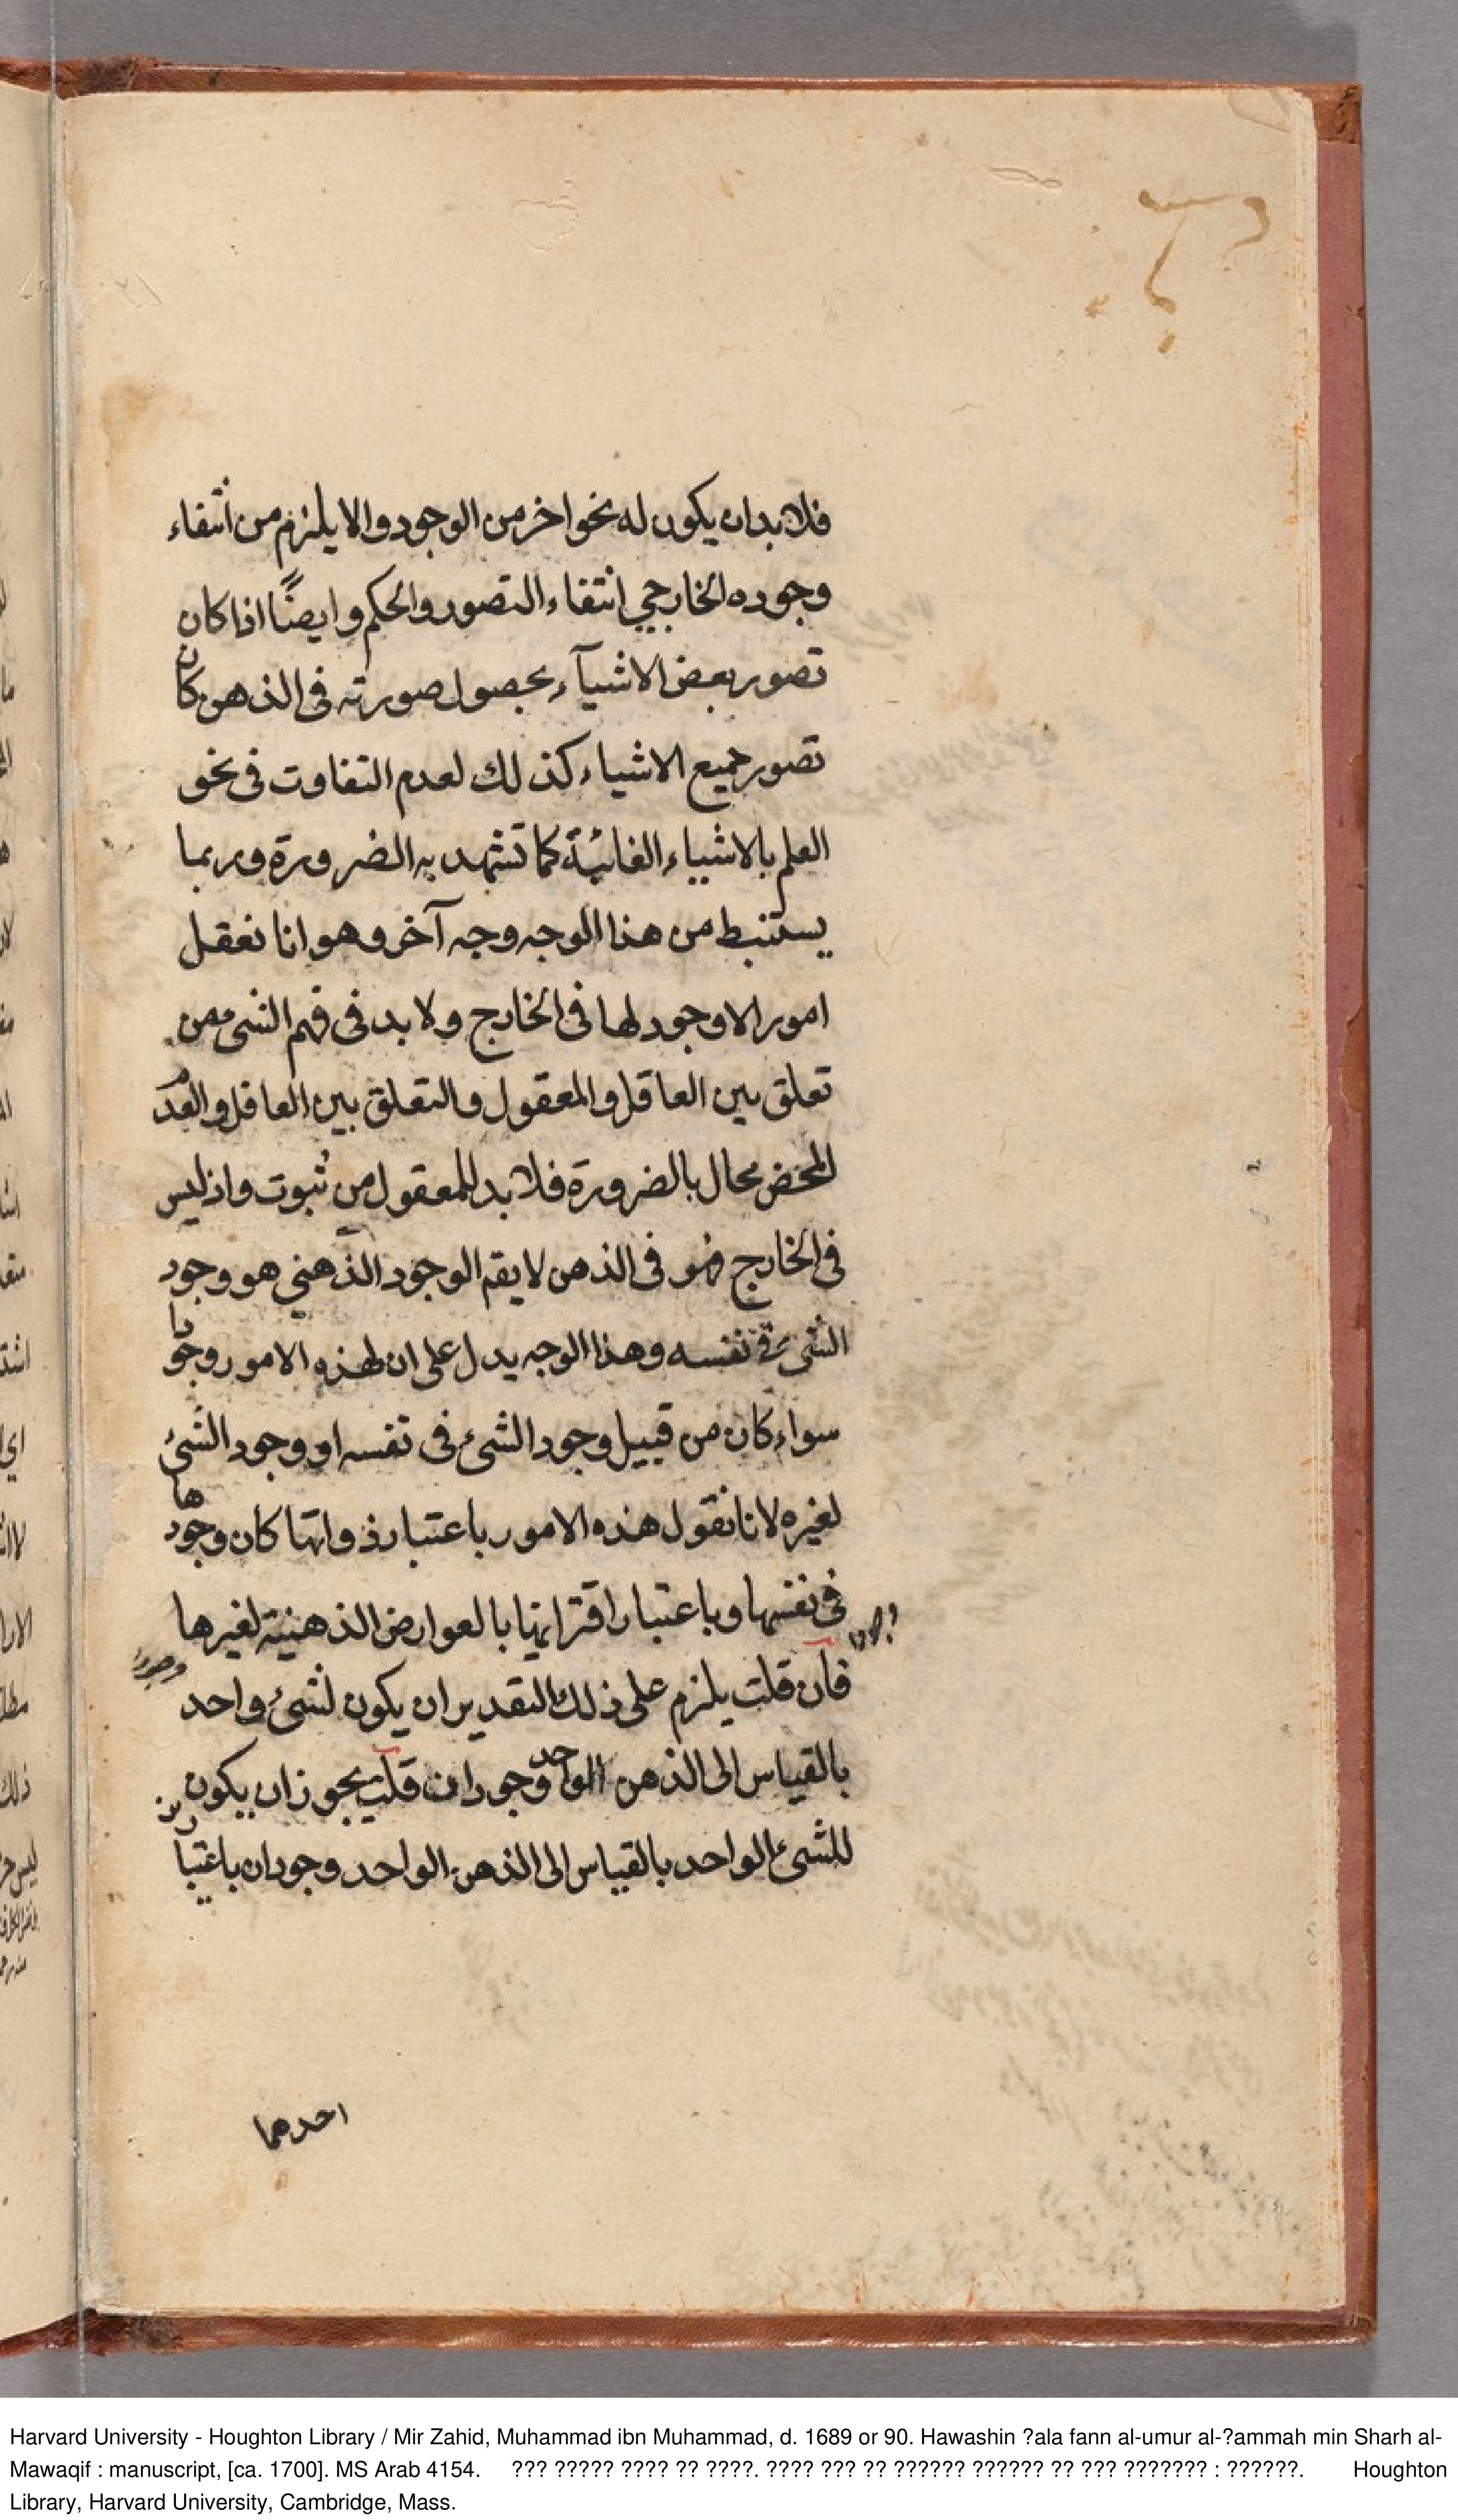 فلا بد ان يكون له نحو اخر من الوجود والا يلزم من انتفاء
وجوده الخارجي انتفاء التصور والحكم وايضًا اذا كان
تصور بعض الاشيآء بحصول صورته فى الذهن كان
تصور جميع الاشياء كذلك لعدم التفاوت فى نحو
العلم بالاشياء الغائبة كما تشهد به الضرورة وربما
يستنبط من هذا الوجه وجه آخر وهو انا نعقل
امورا لا وجود لها فى الخارج ولا بد فى فهم الشى من
تعلق بين العاقل والمعقول والتعلق بين العاقل والعدم
المحض محال بالضرورة فلا بد للمعقول من ثبوت واذ ليس
فى الخارج فهو فى الذهن لا يقم الوجود الذهني هو وجود
الشىء فى نفسه وهذا الوجه يدل على ان لهذه الامور وجودا
سواء كان من قبيل وجود الشىء فى نفسه او وجود الشئ
لغيره لانا نقول هذه الامور باعتبار ذواتها كان وجودها
فى نفسها وباعتبار اقترانها بالعوارض الذهنية لغيرها
فان قلت يلزم على ذلك التقدير ان يكون لشئ واحد
بالقياس الى الذهن الواحد وجودان قلت يجوز ان يكون
للشئ الواحد بالقياس الى الذهن الواحد وجودان باعتبارين
احدهما
Harvard University - Houghton Library / Mir Zahid, Muhammad ibn Muhammad, d. 1689 or 90. Hawashin ?ala fann al-umur al-?ammah min Sharh al-
Mawaqif : manuscript, [ca. 1700]. MS Arab 4154. ??? ????? ???? ?? ????. ???? ??? ?? ?????? ?????? ?? ??? ??????? : ??????. Houghton
Library, Harvard University, Cambridge, Mass.